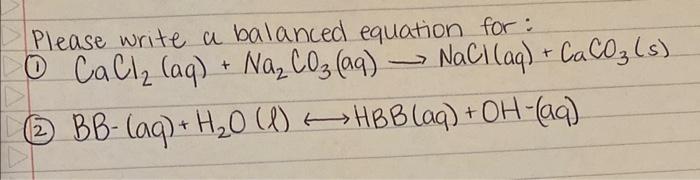 Please write a balanced equation for:
① CaCl₂ (aq) + Na₂CO₃(aq) → NaCl(aq) + CaCO₃(s)
② BB-(aq) + H₂O(l) ↔ HBB(aq) + OH-(aq)